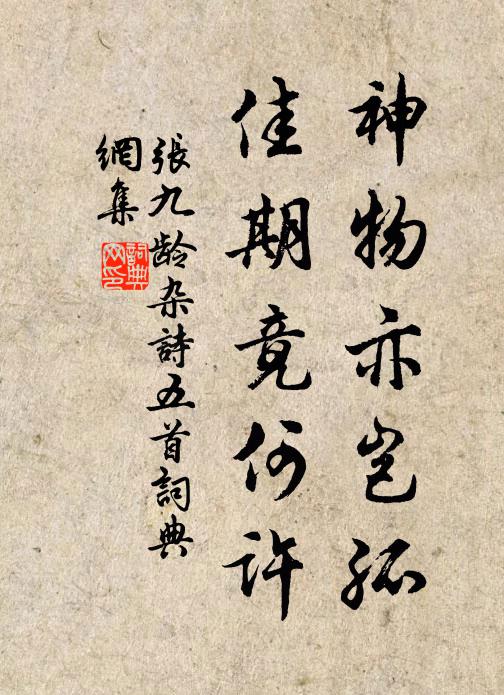 神物亦豈孤
佳期竟何許
張九龄杂詩五首詞典
網集
詞典网印